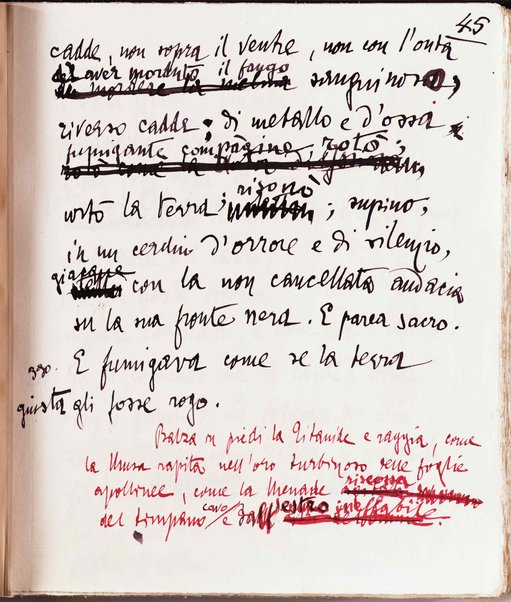 45
cadde, non sopra il ventre, non con l'onta
del aver morduto il fango
sanguinoso,
riverso cadde; di metallo e d'ossa
fumigante compàgine, rotò;
urtò la terra; risonò; supino,
in un cerchio d'orrore e di silenzio,
giacque
con la non cancellata audacia
su la sua fronte nera. E parea sacro.
330. E fumigava come se la terra
giusta gli fosse rogo.
Balza in piedi la Titanide e raggia, come
la Musa rapita nell'oro turbinoso delle foglie
apollinee, come la Menade riscossa
del timpano cavo e dall'estro ineffabile.